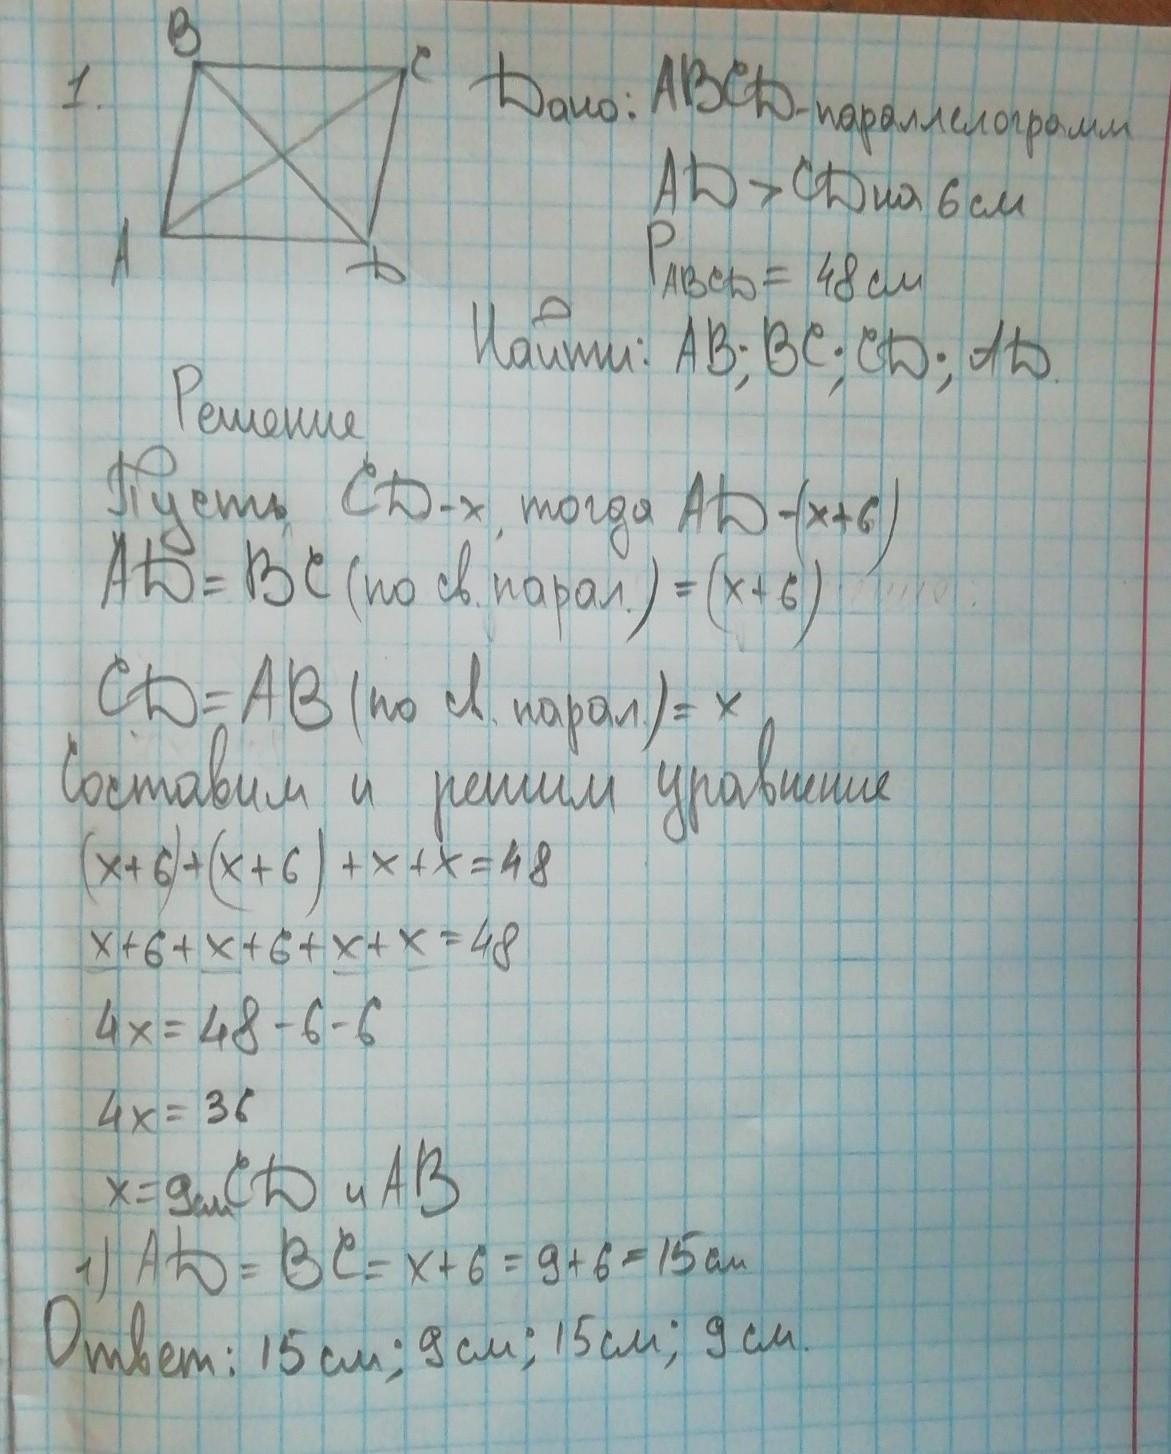 1.
B
C
A
D
Дано: ABCD-параллелограмм
AD > CD на 6 см
PABCD = 48 см
Найти: AB; BC; CD; AD.
Решение
Пусть CD-x, тогда AD-(x+6)
AD = BC (по св. парал.) = (x+6)
CD = AB (по св. парал.) = x
Составим и решим уравнение
(x+6)+(x+6)+x+x=48
x+6+x+6+x+x=48
4x=48-6-6
4x=36
x=9см CD и AB
1) AD = BC = x+6 = 9+6 = 15 см
Ответ: 15 см; 9 см; 15 см; 9 см.